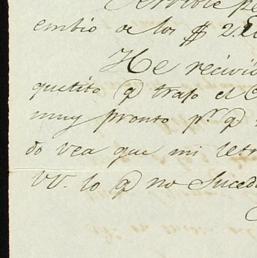 embio de los $ 2
He recivi
quetito q trajo el C
muy pronto pr. q
do vea que mi letr
VV. lo q no suced